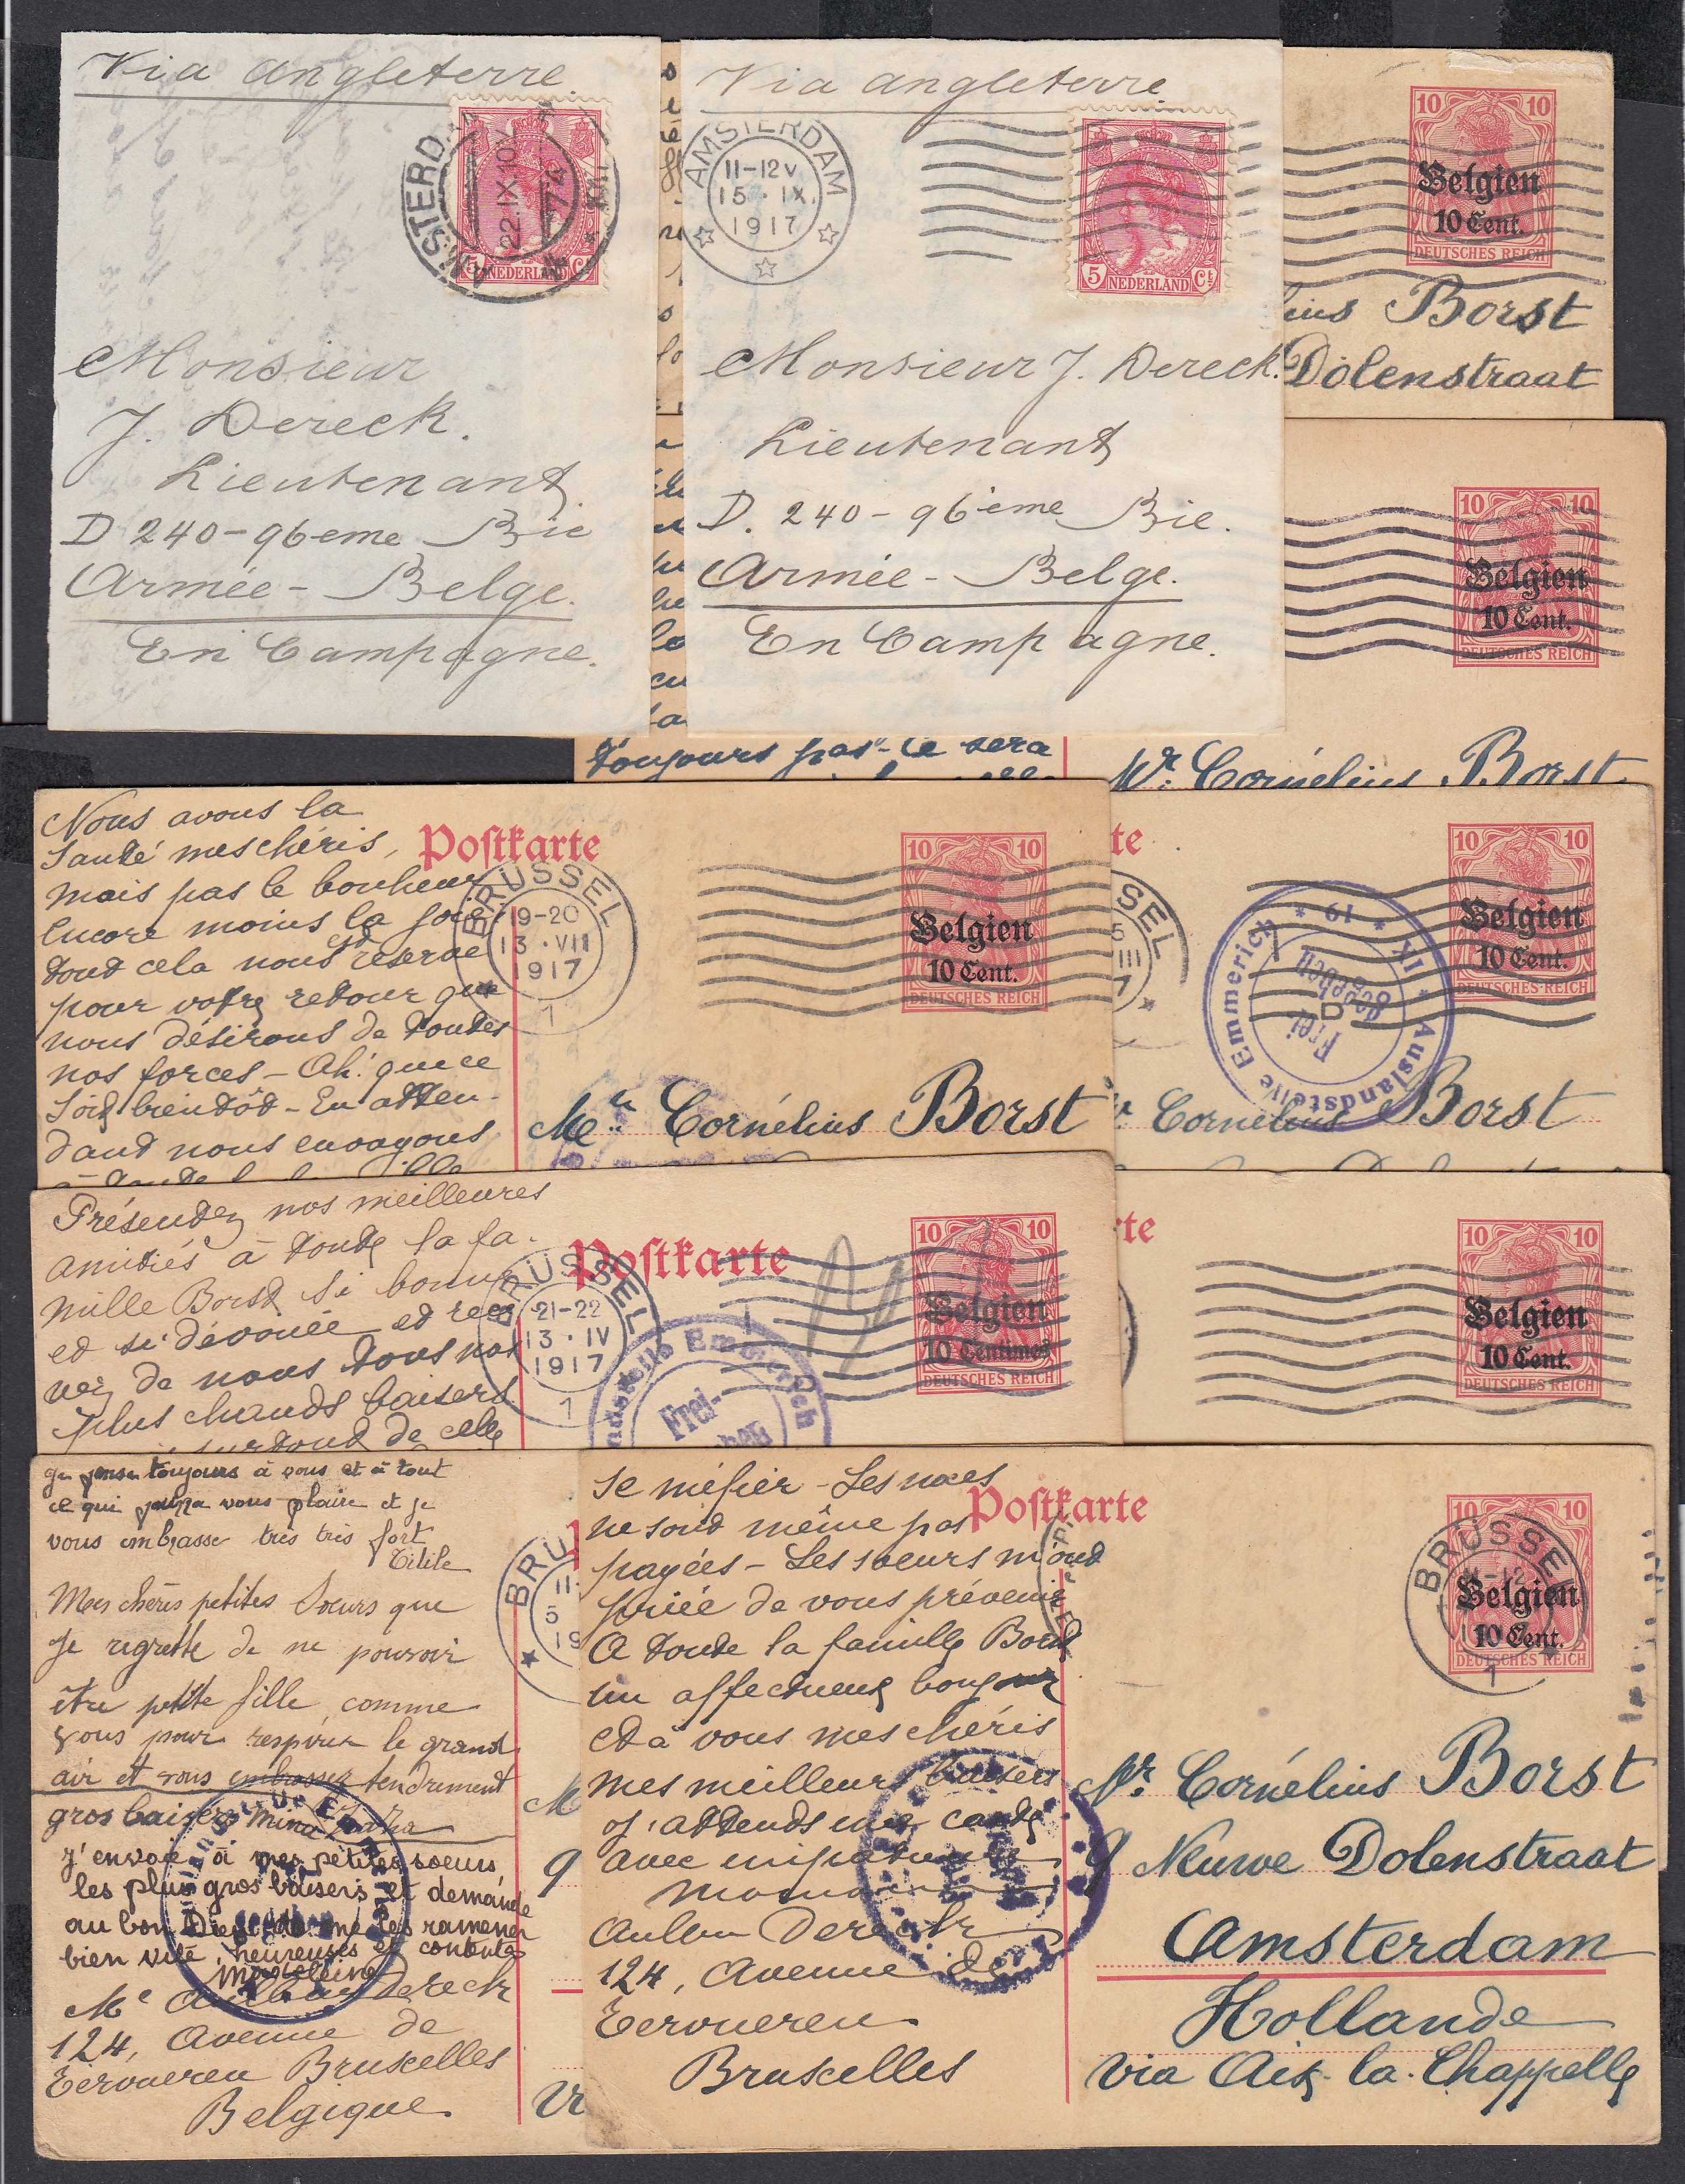 Via Angleterre
AMSTERD
22.IX.10V
5 NEDERLAND Ct
Monsieur
J. Dereck.
Lieutenant
D 240-96eme Bie
Armée - Belge.
En Campagne.
Via Angleterre
AMSTERDAM
11-12V
15 · IX.
1917
5 NEDERLAND Ct
Monsieur J. Dereck.
Lieutenant
D. 240-96ème Bie.
Armée - Belge.
En Campagne.
10 10
Belgien
10 Cent.
DEUTSCHES REICH
lius Borst
Dolenstraat
10 10
Belgien
10 Cent.
DEUTSCHES REICH
toujours pas - ce sera
Mr. Cornélius Borst.
Nous avons la
santé mes chéris,
mais pas le bonheur
encore moins la joie
tout cela nous est réservé
pour votre retour que
nous désirons de toutes
nos forces - Ah! que ce
soit bientôt - En atten-
dant nous envoyons
Postkarte
BRÜSSEL
19-20
13 · VII
1917
1
10 10
Belgien
10 Cent.
DEUTSCHES REICH
Mr. Cornélius Borst
te
SSEL
5
III
7
Auslandstelle Emmerich
Frei
gegeben
* 19 * IX *
10 10
Belgien
10 Cent.
DEUTSCHES REICH
Cornélius Borst
Présentez nos meilleures
amitiés à toute la fa-
mille Borst si bonne
et si dévouée et rece
vez de nous tous nos
plus chauds baisers
surtout de celle
Postkarte
BRÜSSEL
21-22
13 · IV
1917
1
ndstelle Emmerich
Frei-
10 10
Belgien
10 Centimes
DEUTSCHES REICH
rte
10 10
Belgien
10 Cent.
DEUTSCHES REICH
qui pense toujours à vous et à tout
ce qui pourra vous plaire et je
vous embrasse très très fort
Titile
Mes chères petites soeurs que
je regrette de ne pouvoir
être petite fille comme
vous pour respirer le grand
air et vous embrasser tendrement
gros baisers
j'envoie à mes petites soeurs
les plus gros baisers et demande
au bon Dieu de me les ramener
bien vite, heureuses et contentes
Madeleine
Me Dereck
124, Avenue de
Tervueren Bruxelles
Belgique.
BRÜ
11
5
19
se méfier - Les notes
ne sont même pas
payées - Les soeurs m'ont
priée de vous prévenir
A toute la famille Borst
un affectueux bonjour
et à vous mes chéris
mes meilleurs baisers
J'attends une carte
avec impatience
Dereck
124, Avenue de
Tervueren
Bruxelles
Postkarte
10 10
BRÜSSEL
11-12
Belgien
10 Cent.
DEUTSCHES REICH
1
Mr. Cornélius Borst
9 Nieuwe Dolenstraat
Amsterdam
Hollande
via Aix-la-Chappelle